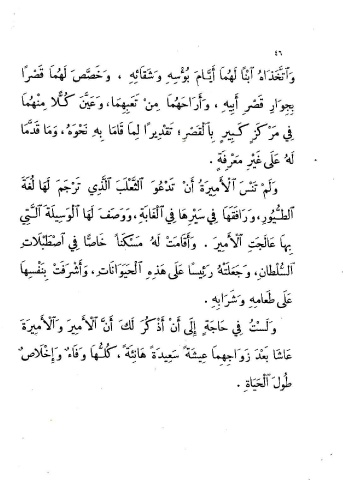 ٤٦
وَٱتَّخَذَاهُ ٱبْنًا لَهُمَا أَيَّامَ بُؤْسِهِ وَشَقَائِهِ ، وَخَصَّصَ لَهُمَا قَصْرًا
بِجِوَارِ قَصْرِ أَبِيهِ ، وَأَرَاحَهُمَا مِنْ تَعَبِهِمَا، وَعَيَّنَ كُلًّا مِنْهُمَا
فِي مَرْكَزٍ كَبِيرٍ بِٱلْقَصْرِ؛ تَقْدِيرًا لِمَا قَامَا بِهِ نَحْوَهُ، وَمَا قَدَّمَا
لَهُ عَلَى غَيْرِ مَعْرِفَةٍ .
وَلَمْ تَنْسَ ٱلْأَمِيرَةُ أَنْ تَدْعُوَ ٱلثَّعْلَبَ ٱلَّذِي تَرْجَمَ لَهَا لُغَةَ
ٱلطُّيُورِ، وَرَافَقَهَا فِي سَيْرِهَا فِي ٱلْغَابَةِ، وَوَصَفَ لَهَا ٱلْوَسِيلَةَ ٱلَّتِي
بِهَا عَالَجَتِ ٱلْأَمِيرَ . وَأَقَامَتْ لَهُ مَسْكَنًا خَاصًّا فِي ٱصْطَبْلَاتِ
ٱلسُّلْطَانِ، وَجَعَلَتْهُ رَئِيسًا عَلَى هٰذِهِ ٱلْحَيَوَانَاتِ، وَأَشْرَفَتْ بِنَفْسِهَا
عَلَى طَعَامِهِ وَشَرَابِهِ .
وَلَسْتُ فِي حَاجَةٍ إِلَى أَنْ أَذْكُرَ لَكَ أَنَّ ٱلْأَمِيرَ وَٱلْأَمِيرَةَ
عَاشَا بَعْدَ زَوَاجِهِمَا عِيشَةً سَعِيدَةً هَانِئَةً ، كُلُّهَا وَفَاءٌ وَإِخْلَاصٌ
طُولَ ٱلْحَيَاةِ .